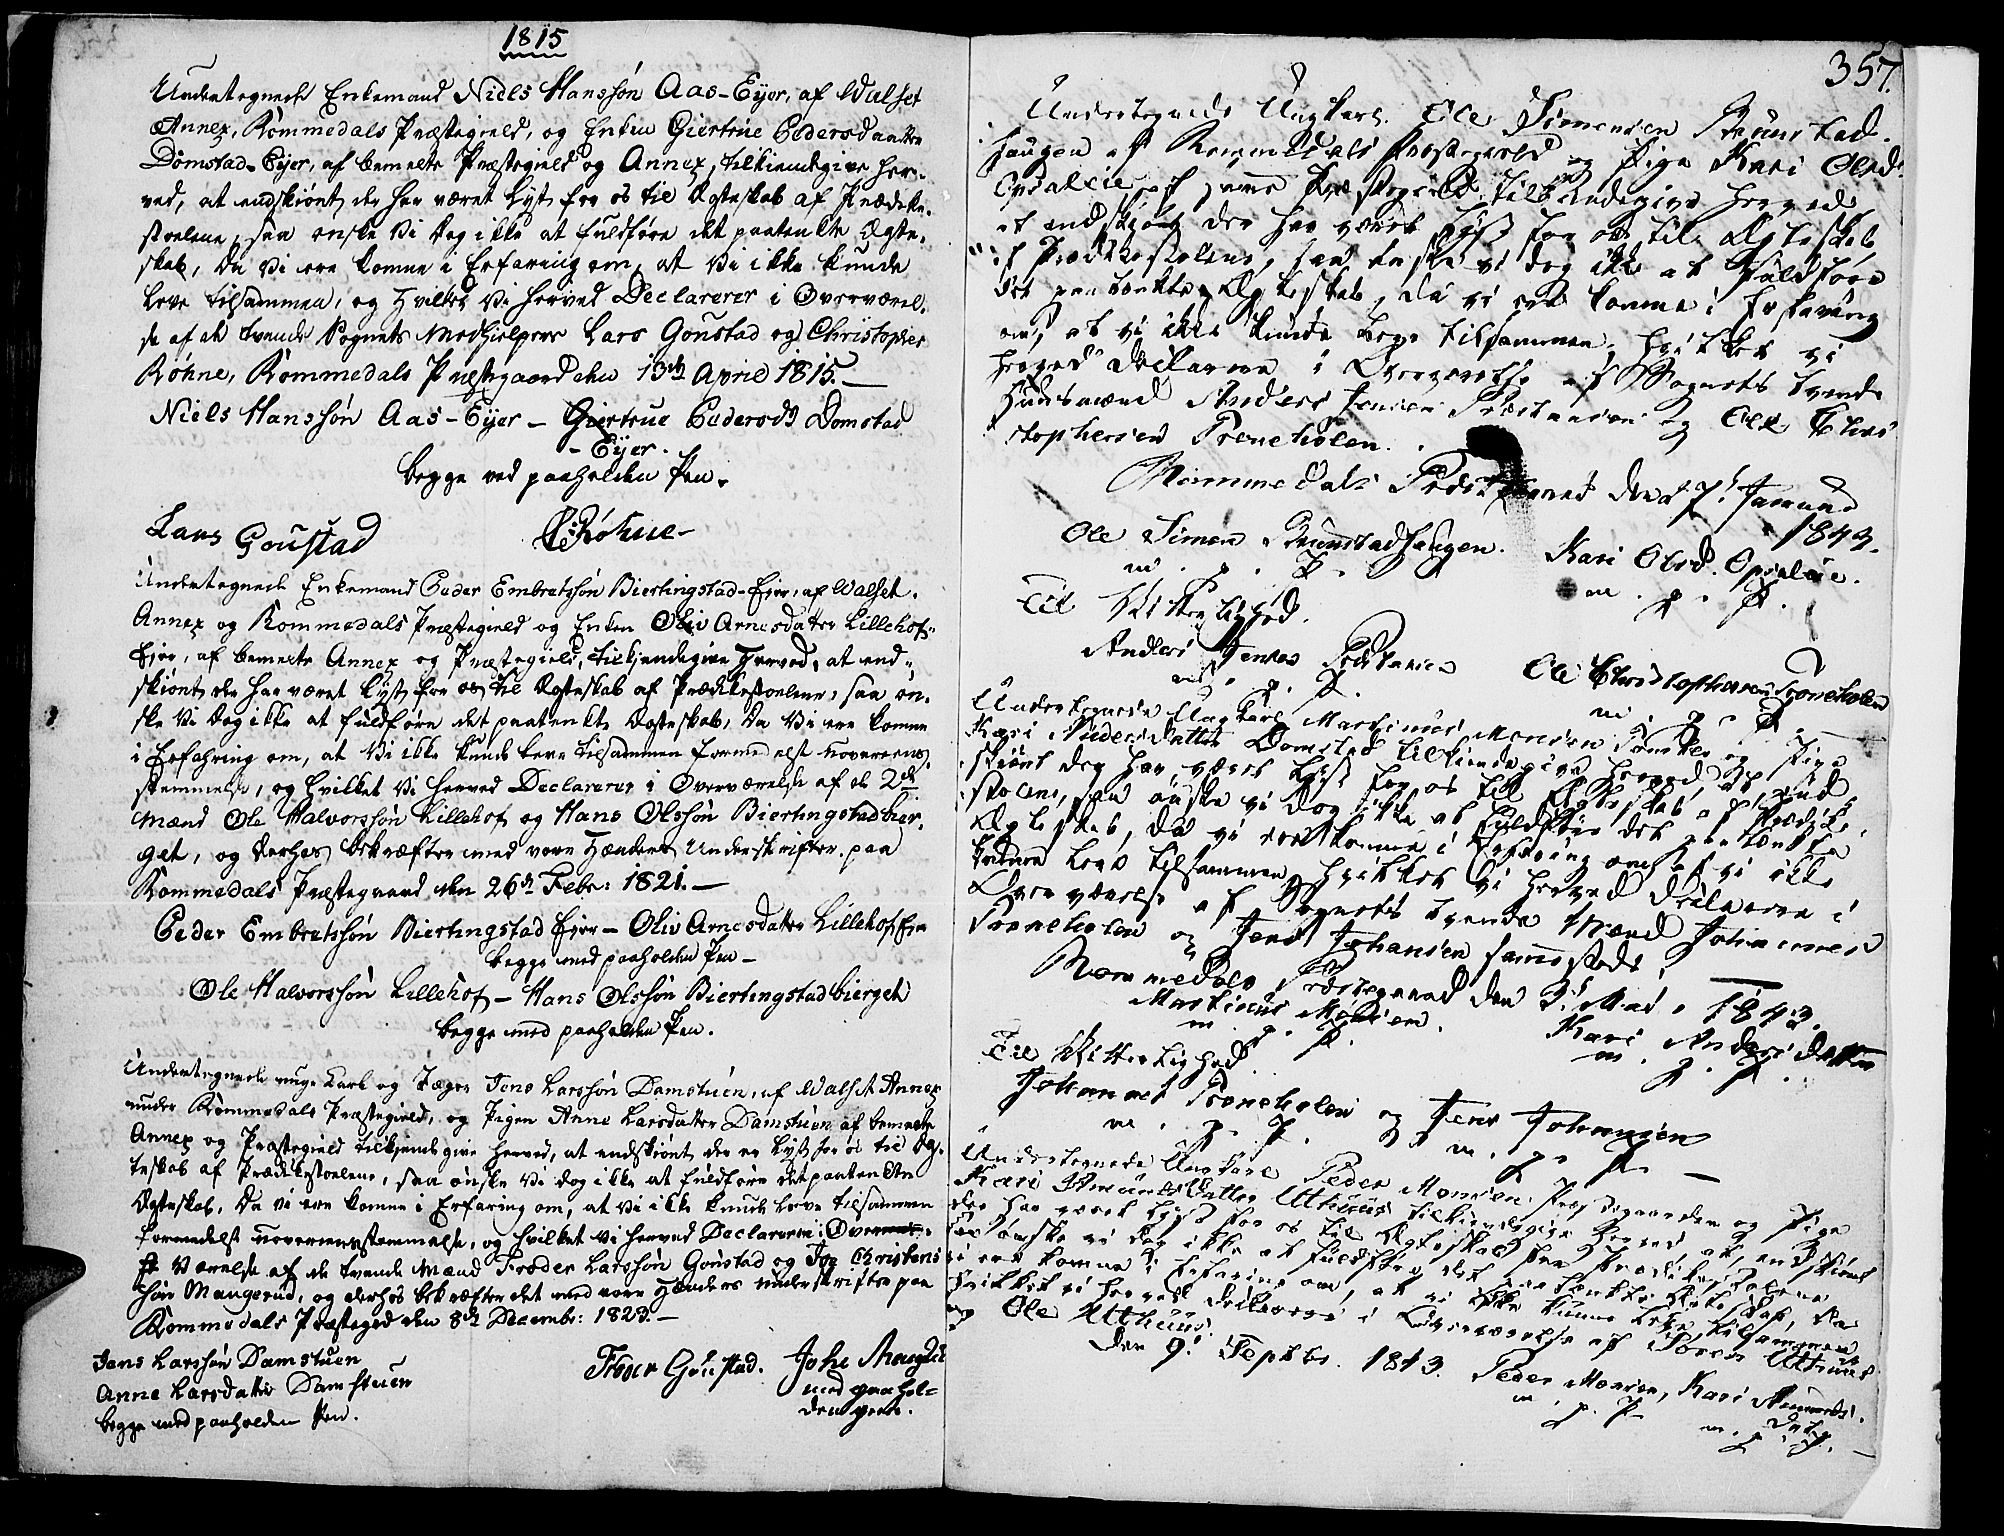 1815
Undertegnede Enkemand Niels Hanssøn Aas-Eyer, af Walset
Annex, Rommedals Præstegield, og Enken Giertrue Pedersdaatter
Domstad-Eyer, af bemelte Præstegield og Annex, tilkiendegive her-
ved, at endskiönt der har været lyst for os til Ægteskab af Prædike-
stoelene, saa önske Vi dog ikke at fuldföre det paatenkte Ægte-
skab, da Vi ere komne i Erfaring om, at Vi ikke kunde
leve tilsammen, og hvilket Vi herved Declarerer i Overværel-
se af de tvende Sognets Medhjelpere Lars Goustad og Christopher
Röhne, Rommedals Præstegaard den 13de April 1815. —
Niels Hanssøn Aas-Eyer — Giertrue Pedersdr Domstad
- Eyer.
begge ved paaholden Pen.
Lars Goustad CRöhne
Undertegnede Enkemand Peder Embretssön Biertingstad-Eyer, af Walset
Annex og Rommedals Præstegield og Enken Oliv Arnesdatter Lillehof-
Eyer, af bemelte Annex og Præstegield, tilkjendegive herved, at end-
skiönt der har været lyst for os til Ægteskab af Prædikestoelene, saa ön-
ske Vi dog ikke at fuldföre det paatenkte Ægteskab, da Vi ere komne
i Erfahring om, at Vi ikke kunde leve tilsammen formedelst uovereens-
stemmelse, og hvilket Vi herved Declarerer i Overværelse af de 2de
Mænd Ole Halvorssön Lillehof og Hans Olssön Biertingstadbier-
get, og derhos bekræfter med vore Hænders Underskrifter paa
Rommedals Præstegaard den 26de Febr: 1821. —
Peder Embretssön Biertingstad Eyer — Oliv Arnesdatter Lillehof Eyer
begge med paaholden Pen —
Ole Halvorssön Lillehof — Hans Olssön Biertingstadbierget
begge med paaholden Pen.
Undertegnede unge Karl og Jæger Jens Larssön Damstuen, af Walset Annex
under Rommedals Præstegield, og Pigen Anne Larsdatter Damstuen af bemelte
Annex og Præstegield tilkjendegive herved, at endskiönt der er lyst for os til Æg-
teskab af Prædikestoelene, saa önske Vi dog ikke at fuldföre det paatenkte
Ægteskab, da Vi ere komne i Erfaring om, at Vi ikke kunde leve tilsammen
formedelst uovereensstemmelse, og hvilket vi herved Declarerer i Over
Værelse af de tvende Mænd Froder Larssön Goustad og Christens
sön Mangerud, og derhos bekræfter det med vore Hænders underskrifter paa
Rommedals Præstegrd den 8de Decembr: 1823. —
Jens Larssön Damstuen
Anne Larsdatter Damstuen
begge med paaholden Pen.
Goustad.
med paahol-
den pen.
357.
Undertegnede Ungkarl Ole Simensen Braunstad-
haugen af Rommedals Præstegield og Pige Kari Olsd.
Opsalie, af samme Præstegield tilkiendegive herved,
at endskiönt der har været lyst for os til Ægteskab
af Prædikestolene, saa önske vi dog ikke at fuldföre
det paatænkte Ægteskab, da vi ere komne i Erfaring
om, at vi ikke kunde leve tilsammen, hvilket vi
herved declarere i Overværelse af Sognets tvende
Huusmænd Anders Jensen og Ole Chri
stophersen Proneholen.
Rommedals Præstegaard den 7. Januar
1843.
Ole Simens Braunstadhaugen. Kari Olsd. Opsalie.
m. p. P. m. p. P.
Til Vitterlighed.
Anders Jensen Ole Christophersen Proneholen
m. p. P. m. p. P.
Undertegnede Ungkarl Martinus Monsen og Pige
Kari Andersdatter Domstad tilkiendegive herved, at end
skiönt der har været lyst for os til Ægteskab af Prædike
stolene, saa önske vi dog ikke at fuldföre det paatenkte
Ægteskab, da vi ere komne i Erfaring om, at vi ikke
kunne leve tilsammen, hvilket vi herved declarere i
Overværelse af Sognets tvende Mænd Johannes
Proneholen og Jens Johansen sammesteds.
Rommedals Præstegaard den 3. Mai 1843.
Martinus Monsen. Kari Andersdatter
m. p. P. m. p. P.
Til Vitterlighed.
Johannes Proneholen og Jens Johansen
m. p. P. m. p. P. —
Undertegnede Ungkarl Peder Monsen Præstegaarden og Pige
Kari Amundsdatter Uthuus tilkiendegive herved, at, endskiönt
der har været lyst for os til Ægteskab fra Prædikestolene
saa önske vi dog ikke at fuldföre det paatænkte Ægteskab, da
vi ere komne i Erfaring om, at vi ikke kunne leve tilsammen
hvilket vi herved declarere i Overværelse af Uthuus
og Ole Uthuus.
den 9. Septbr. 1843. Peder Monsen, Kari Amunds-
m. p. P. dat.
m. p. P.